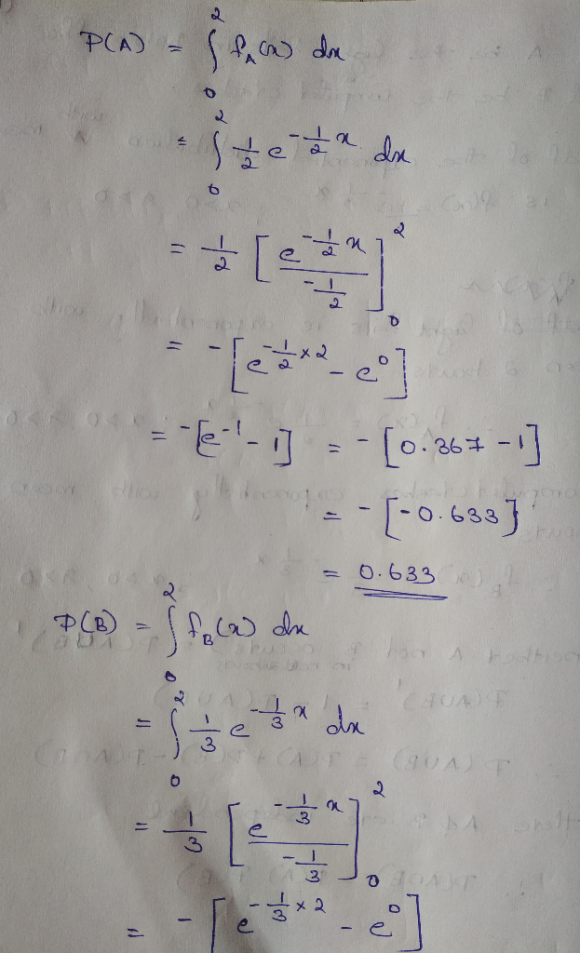 P(A) = ∫₀² f_A(x) dx
= ∫₀² 1/2 e^(-1/2 x) dx
= 1/2 [e^(-1/2 x) / (-1/2)]₀²
= -[e^(-1/2 × 2) - e⁰]
= -[e⁻¹ - 1] = -[0.367 - 1]
= -[-0.633]
= 0.633
P(B) = ∫₀² f_B(x) dx
= ∫₀² 1/3 e^(-1/3 x) dx
= 1/3 [e^(-1/3 x) / (-1/3)]₀²
= -[e^(-1/3 × 2) - e⁰]